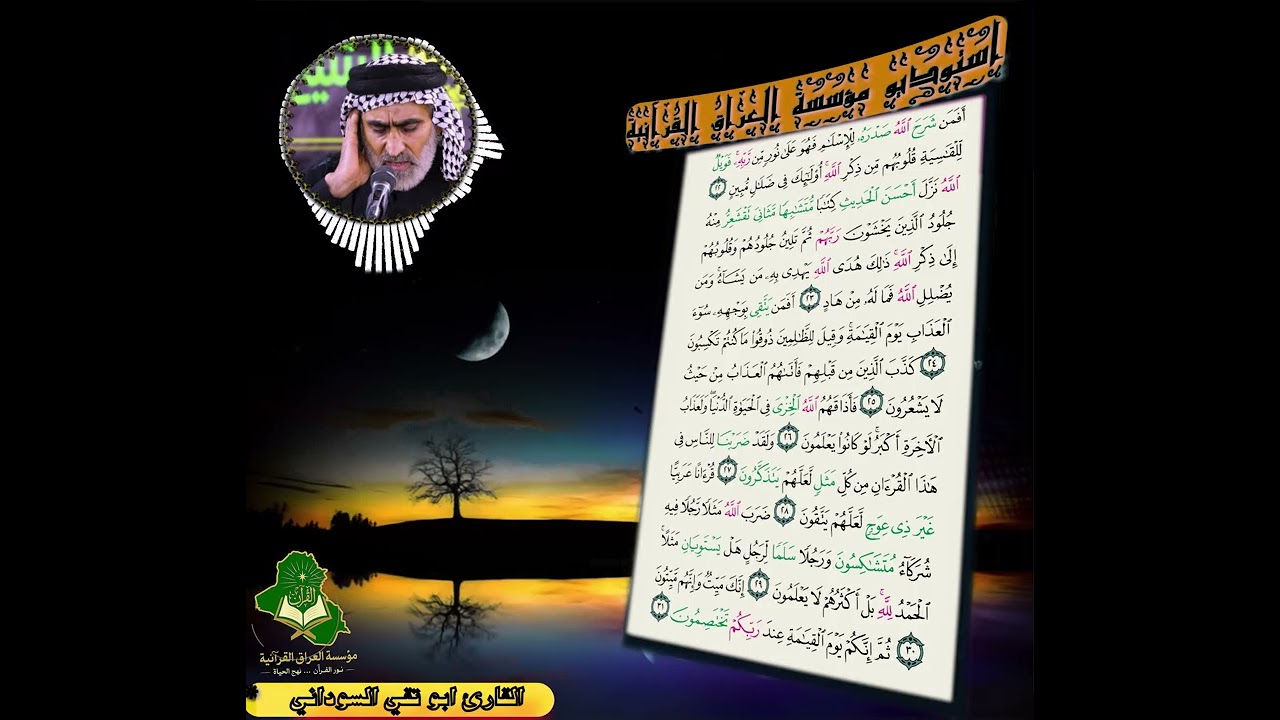 استوديو مؤسسة العراق القرآنية
أَفَمَن شَرَحَ ٱللَّهُ صَدْرَهُۥ لِلْإِسْلَٰمِ فَهُوَ عَلَىٰ نُورٍ مِّن رَّبِّهِۦ ۚ فَوَيْلٌ
لِّلْقَٰسِيَةِ قُلُوبُهُم مِّن ذِكْرِ ٱللَّهِ ۚ أُو۟لَٰٓئِكَ فِى ضَلَٰلٍ مُّبِينٍ ٢٢
ٱللَّهُ نَزَّلَ أَحْسَنَ ٱلْحَدِيثِ كِتَٰبًا مُّتَشَٰبِهًا مَّثَانِىَ تَقْشَعِرُّ مِنْهُ
جُلُودُ ٱلَّذِينَ يَخْشَوْنَ رَبَّهُمْ ثُمَّ تَلِينُ جُلُودُهُمْ وَقُلُوبُهُمْ
إِلَىٰ ذِكْرِ ٱللَّهِ ۚ ذَٰلِكَ هُدَى ٱللَّهِ يَهْدِى بِهِۦ مَن يَشَآءُ ۚ وَمَن
يُضْلِلِ ٱللَّهُ فَمَا لَهُۥ مِنْ هَادٍ ٢٣ أَفَمَن يَتَّقِى بِوَجْهِهِۦ سُوٓءَ
ٱلْعَذَابِ يَوْمَ ٱلْقِيَٰمَةِ ۚ وَقِيلَ لِلظَّٰلِمِينَ ذُوقُوا۟ مَا كُنتُمْ تَكْسِبُونَ
٢٤ كَذَّبَ ٱلَّذِينَ مِن قَبْلِهِمْ فَأَتَىٰهُمُ ٱلْعَذَابُ مِنْ حَيْثُ
لَا يَشْعُرُونَ ٢٥ فَأَذَاقَهُمُ ٱللَّهُ ٱلْخِزْىَ فِى ٱلْحَيَوٰةِ ٱلدُّنْيَا ۖ وَلَعَذَابُ
ٱلْءَاخِرَةِ أَكْبَرُ ۚ لَوْ كَانُوا۟ يَعْلَمُونَ ٢٦ وَلَقَدْ ضَرَبْنَا لِلنَّاسِ فِى
هَٰذَا ٱلْقُرْءَانِ مِن كُلِّ مَثَلٍ لَّعَلَّهُمْ يَتَذَكَّرُونَ ٢٧ قُرْءَانًا عَرَبِيًّا
غَيْرَ ذِى عِوَجٍ لَّعَلَّهُمْ يَتَّقُونَ ٢٨ ضَرَبَ ٱللَّهُ مَثَلًا رَّجُلًا فِيهِ
شُرَكَآءُ مُتَشَٰكِسُونَ وَرَجُلًا سَلَمًا لِّرَجُلٍ هَلْ يَسْتَوِيَانِ مَثَلًا ۚ
ٱلْحَمْدُ لِلَّهِ ۚ بَلْ أَكْثَرُهُمْ لَا يَعْلَمُونَ ٢٩ إِنَّكَ مَيِّتٌ وَإِنَّهُم مَّيِّتُونَ
٣٠ ثُمَّ إِنَّكُمْ يَوْمَ ٱلْقِيَٰمَةِ عِندَ رَبِّكُمْ تَخْتَصِمُونَ ٣١
القرآن
مؤسسة العراق القرآنية
نور القرآن ... نهج الحياة
القارئ ابو تقي السوداني